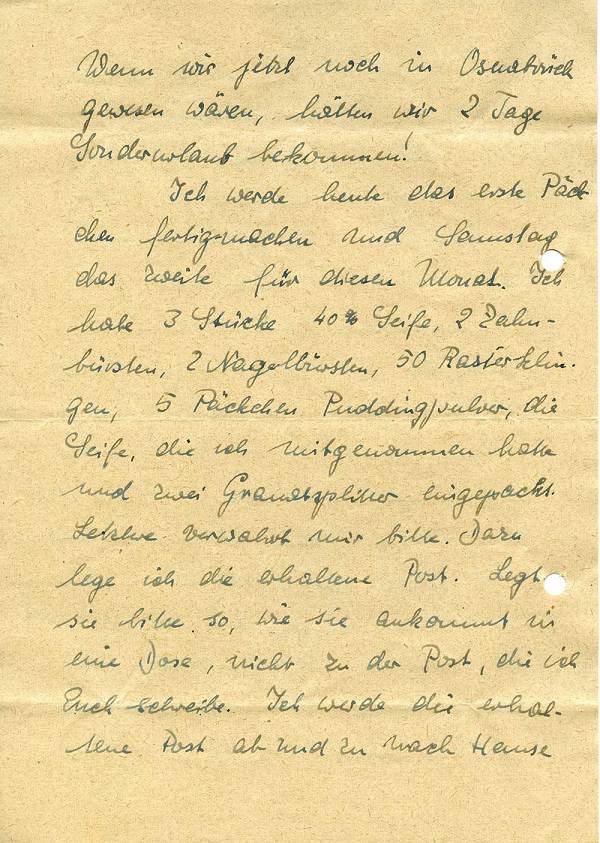 Wenn wir jetzt noch in Osnabrück
gewesen wären, hätten wir 2 Tage
Sonderurlaub bekommen!
Ich werde heute das erste Päck
chen fertigmachen und Samstag
das zweite für diesen Monat. Ich
habe 3 Stücke 40% Seife, 2 Zahn-
bürsten, 2 Nagelbürsten, 50 Rasierklin-
gen, 5 Päckchen Puddingpulver, die
Seife, die ich mitgenommen hatte
und zwei Granatsplitter eingepackt.
Letztere verwahrt mir bitte. Dazu
lege ich die erhaltene Post. Legt
sie bitte so, wie sie ankommt in
eine Dose, nicht zu der Post, die ich
Euch schreibe. Ich werde die erhal-
tene Post ab und zu nach Hause